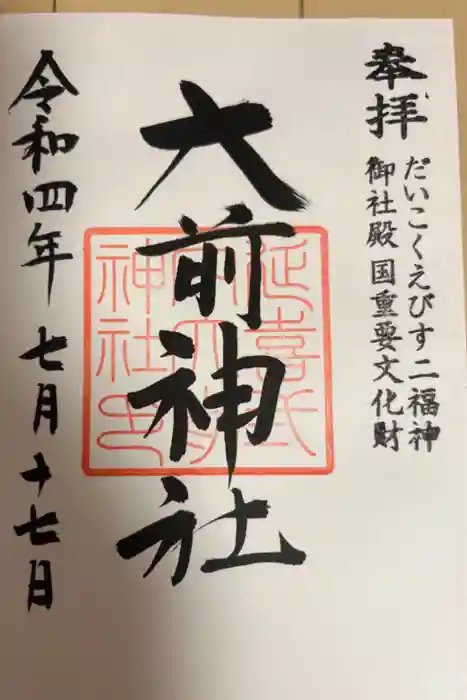 奉拝
だいこくえびす二福神
御社殿国重要文化財
大前神社
延喜式
神社印
令和四年七月十七日